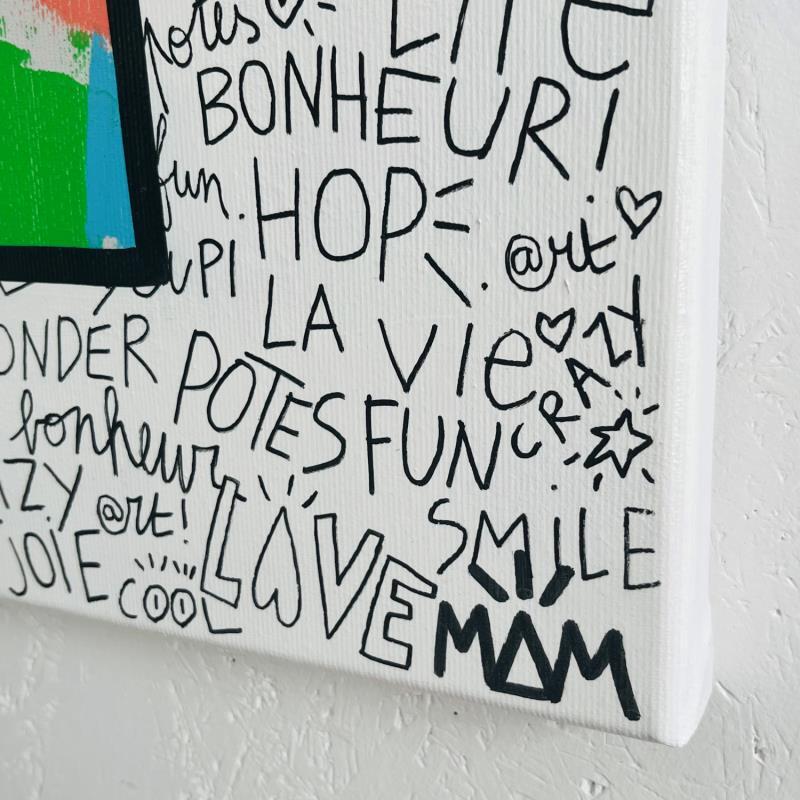 potes
LIfe
BONHEUR!
fun.
HOPE
@rt
YOUPI
LA VIe
CRAZY
ONDER
POTES
FUN
bonheur
AZY
@rt!
LOVE
SMILE
JOIE
COOL
MAM